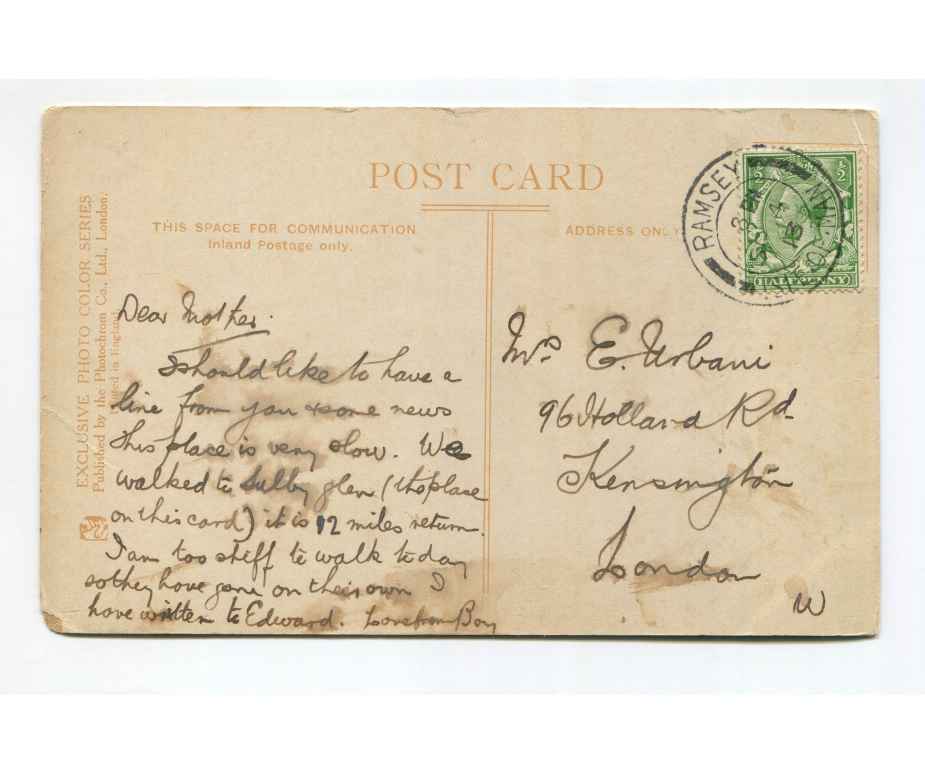 POST CARD
THIS SPACE FOR COMMUNICATION
Inland Postage only.
ADDRESS ONLY
EXCLUSIVE PHOTO COLOR SERIES
Published by the Photochrom Co., Ltd., London.
Printed in England
RAMSEY
ISLE OF MAN
13
½ ½
HALFPENNY
Dear Mother.
I should like to have a
line from you & some news
this place is very slow. We
walked to Sulby glen (the place
on this card) it is 12 miles return.
I am too stiff to walk today
so they have gone on their own I
have written to Edward. Love from Boy
Mrs E. Urbani
96 Holland Rd.
Kensington
London
W